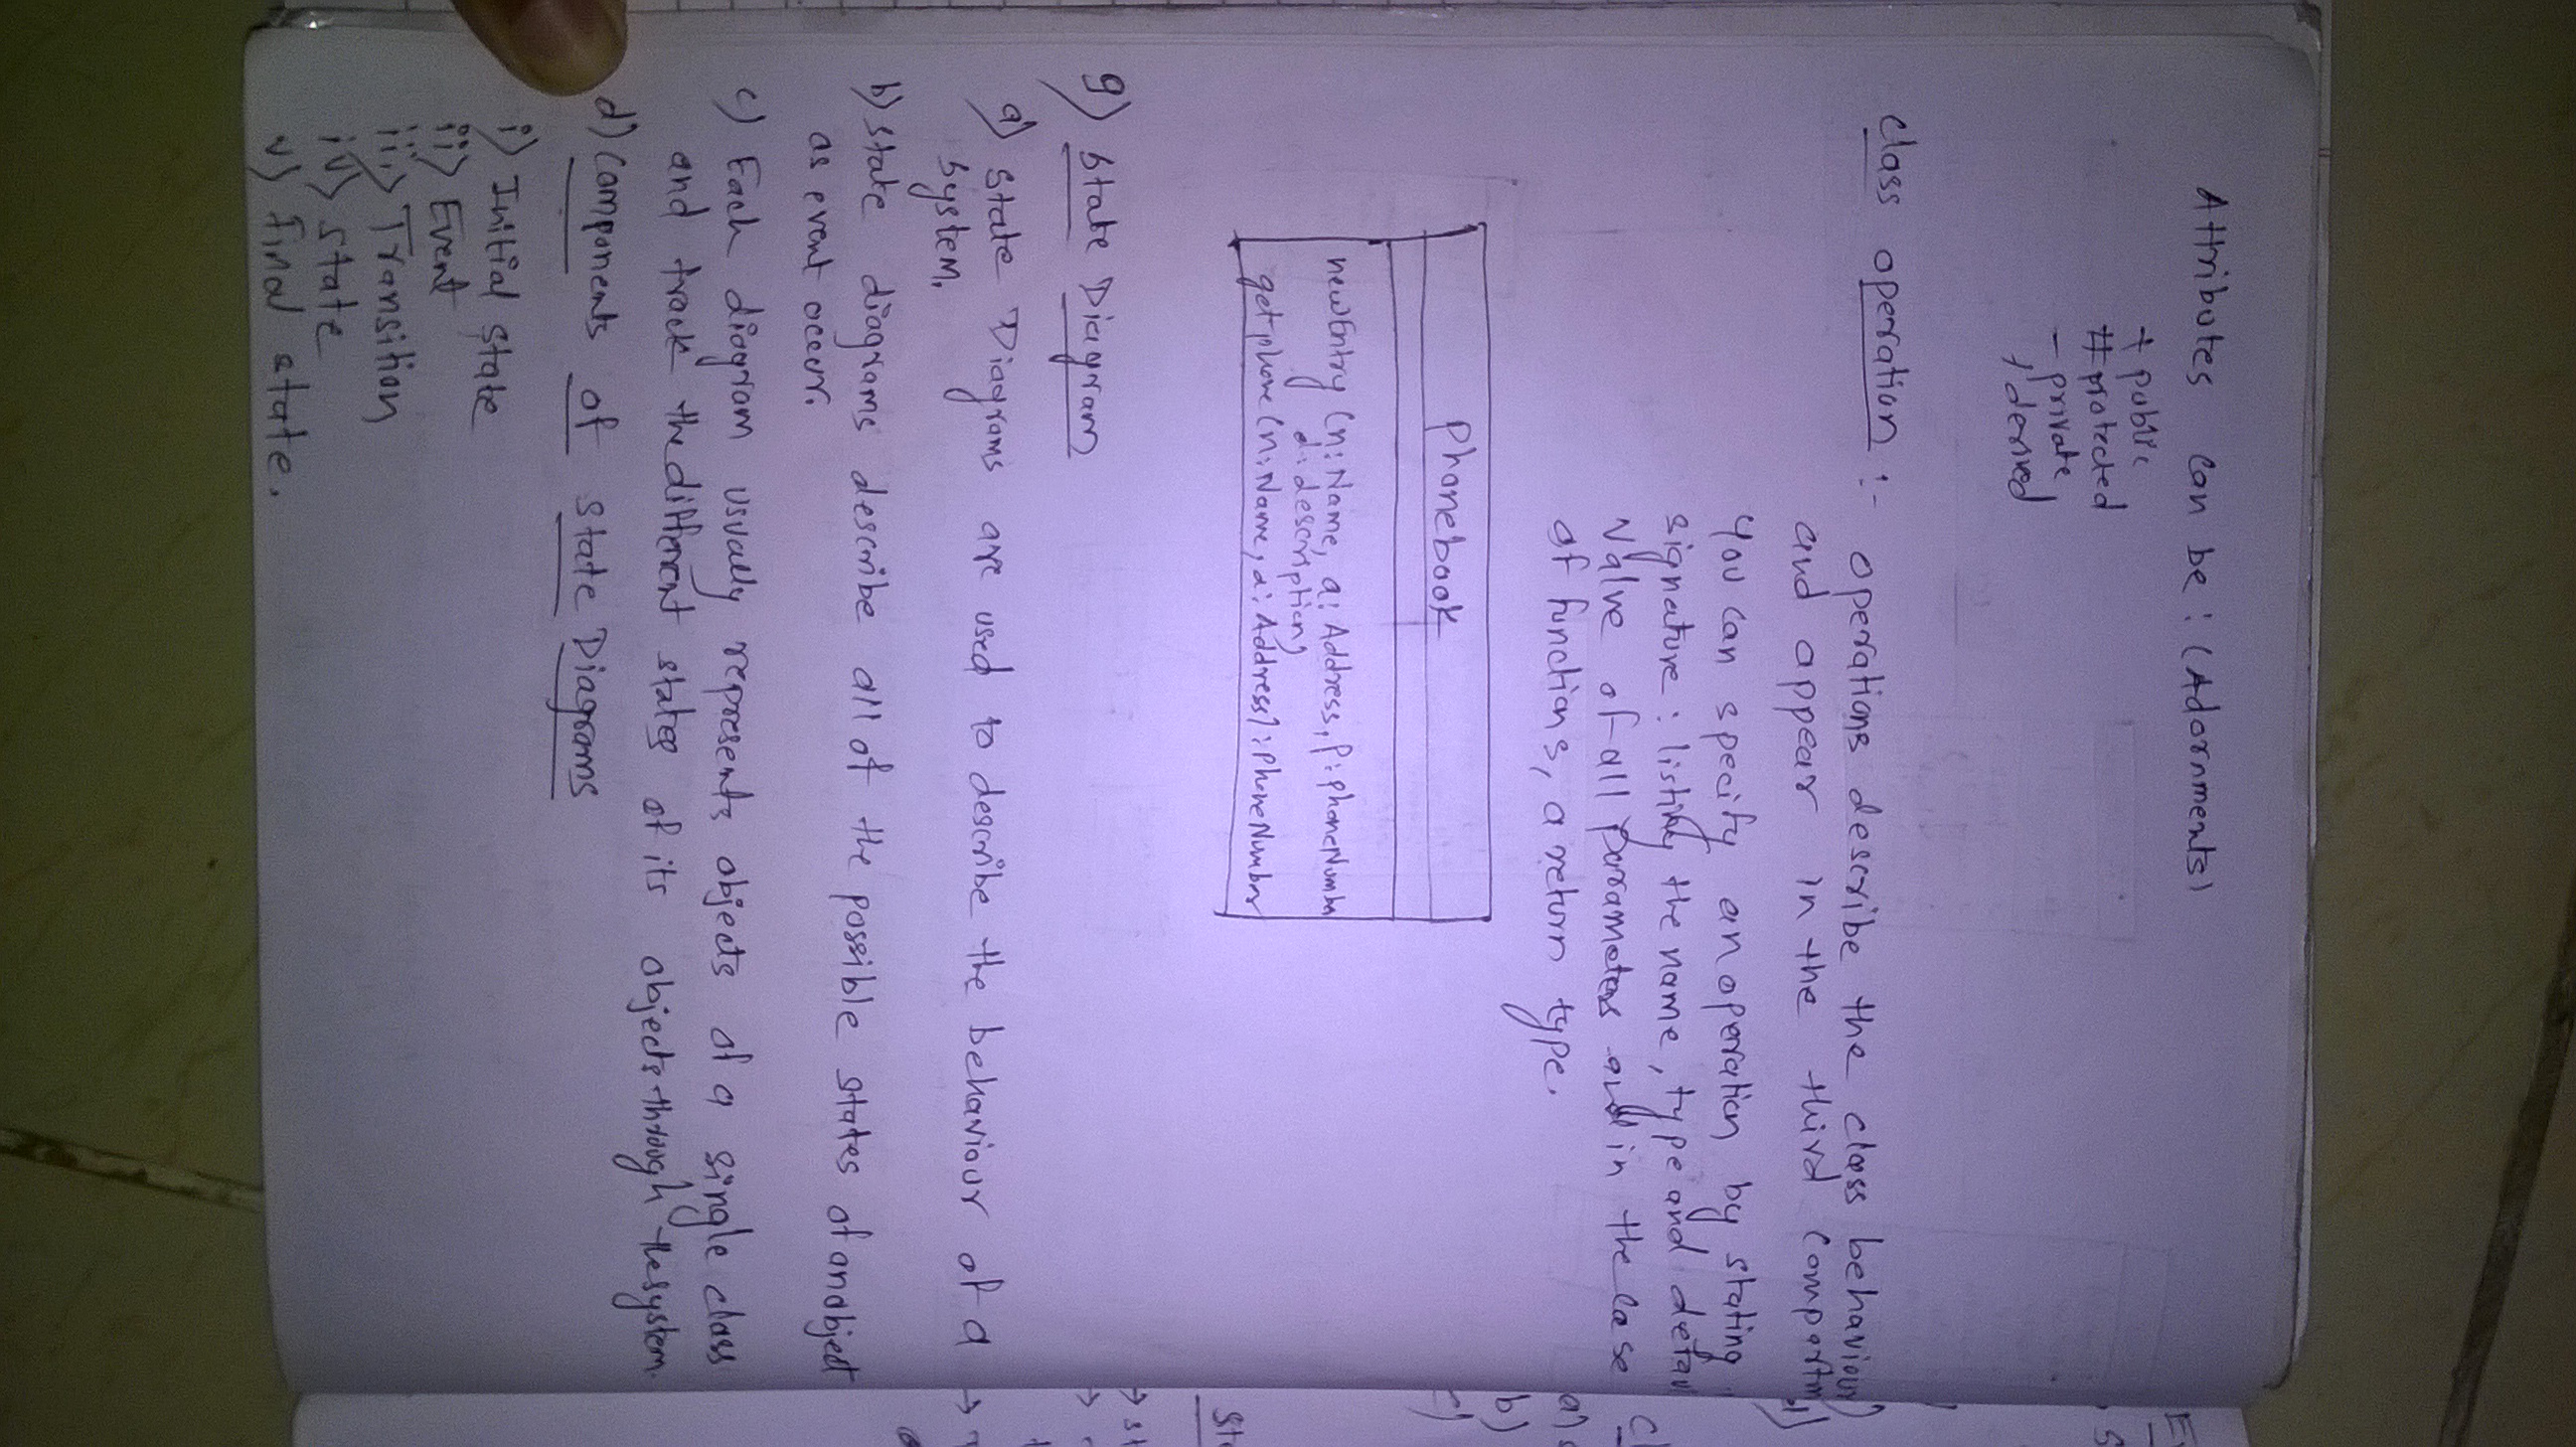 Attributes can be : (Adornments)
+ public
# protected
- private
, derived
class operation :- operations describe the class behaviour
and appear in the third compartment
you can specify an operation by stating
signature : listing the name, type and default
value of all parameters and in the case
of functions, a return type.
Phonebook
newEntry (n:Name, a: Address, P: phoneNumber
d: description)
getphone (n:Name, a: Address): PhoneNumber
g) State Diagram
a) State Diagrams are used to describe the behaviour of a
system.
b) state diagrams describe all of the possible states of anobject
as event occur.
c) Each diagram usually represents objects of a single class
and track the different states of its objects through the system.
d) Components of State Diagrams
i) Initial state
ii) Event
iii) Transition
iv) state
v) final state.